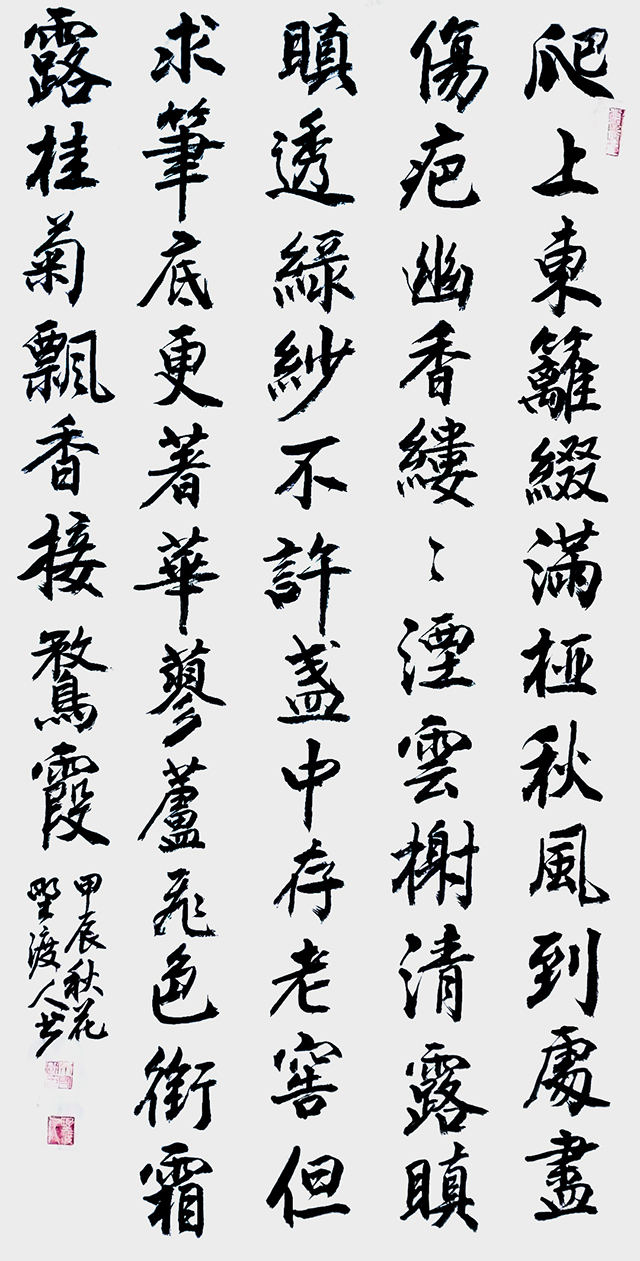 爬上東籬綴滿椏秋風到處盡
傷疤幽香縷〻湮雲榭清露瞋
瞋透綠紗不許盞中存老窖但
求筆底更著華蓼蘆飛色銜霜
露桂菊飄香接鶩霞
甲辰秋花
野渡人书